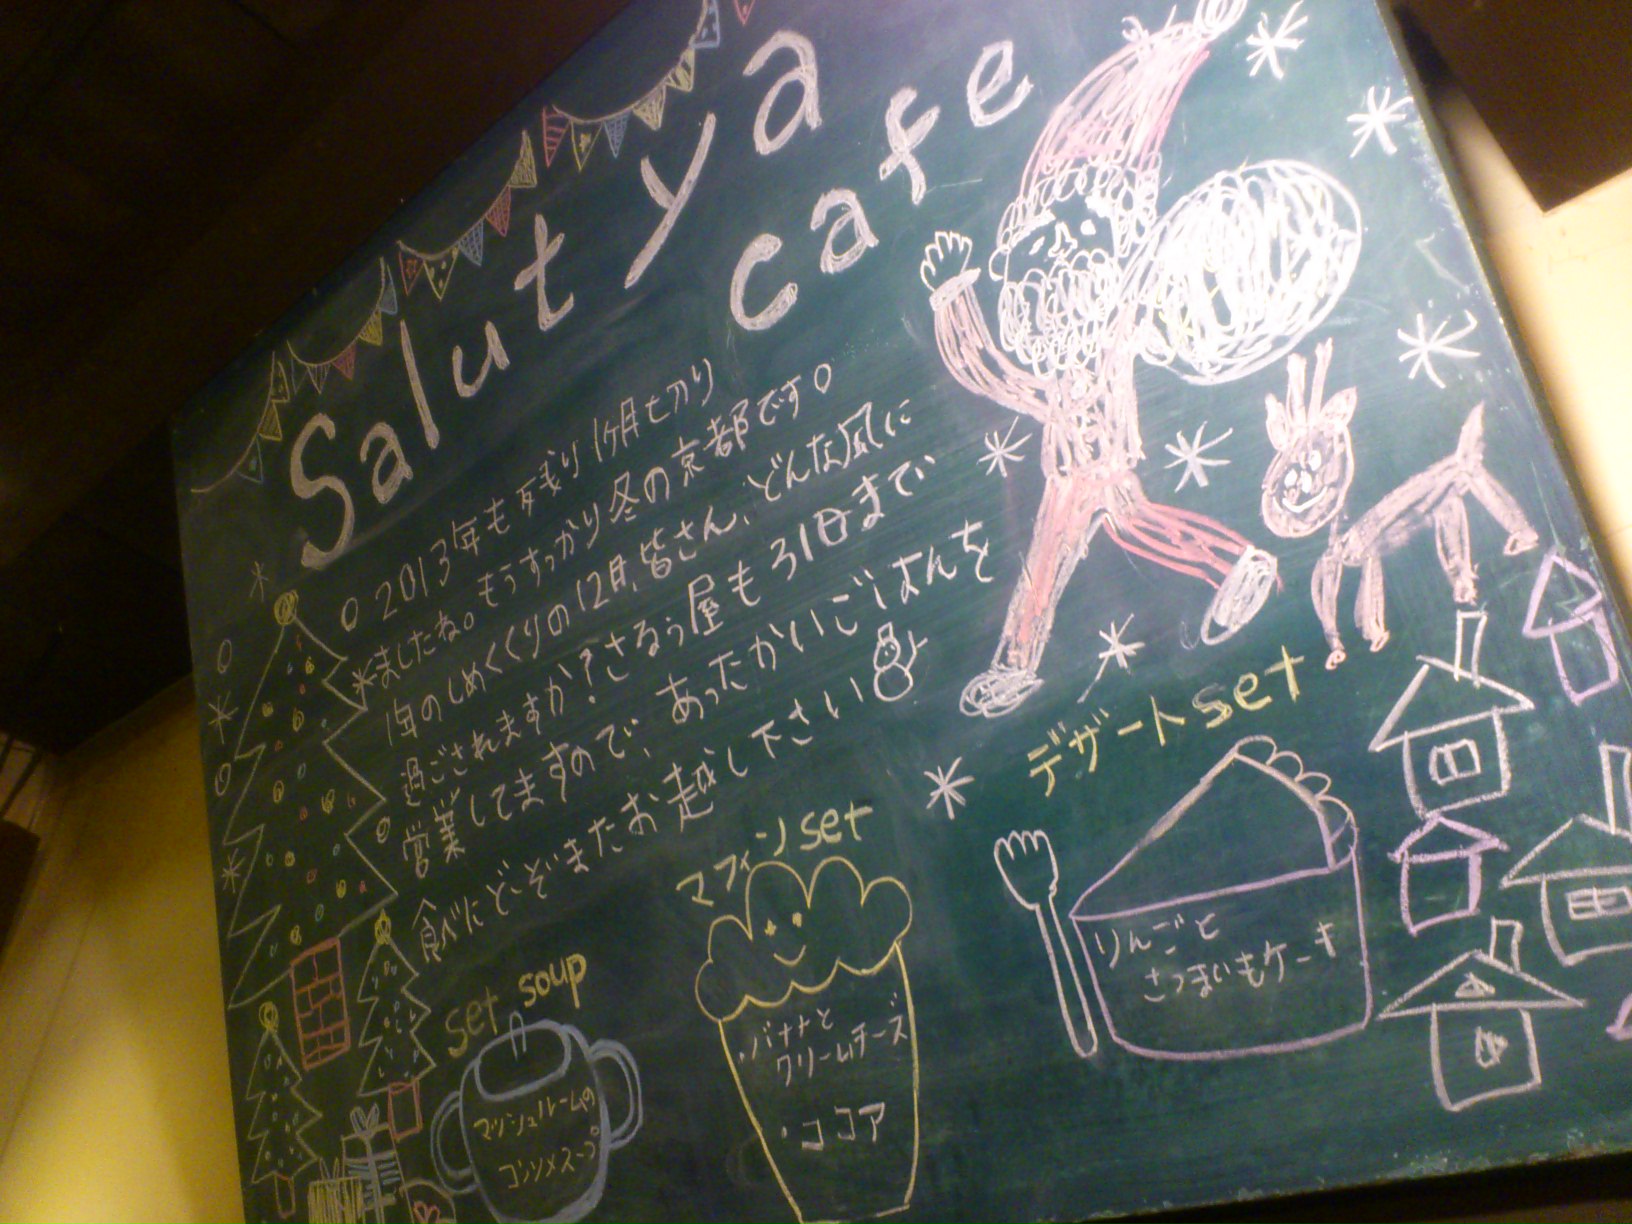 Salut ya
cafe
2013年も残り1ヶ月も切り
ましたね。もうすっかり冬の京都です。
1年のしめくくりの12月、皆さん、どんな風に
過ごされますか？さるぅ屋も31日まで
営業してますので、あったかいごはんを
食べにどぞまたお越し下さい
set soup
マッシュルームの
コンソメスープ
マフィンset
・バナナと
クリームチーズ
・ココア
デザートset
りんごと
さつまいもケーキ